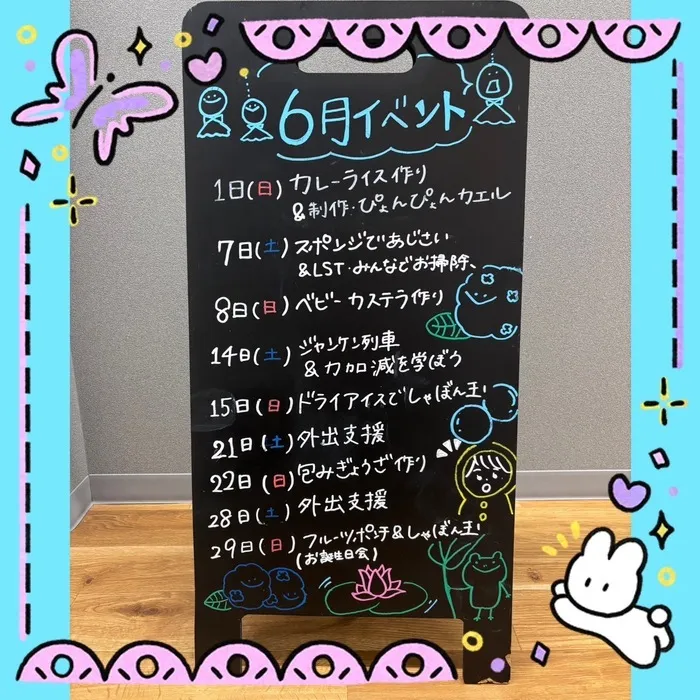 6月イベント
1日(日) カレーライス作り
&制作:ぴょんぴょんカエル
7日(土) スポンジであじさい
&LST・みんなでお掃除、
8日(日) ベビーカステラ作り
14日(土) ジャンケン列車
&力加減を学ぼう
15日(日) ドライアイスでしゃぼん玉
21日(土) 外出支援
22日(日) 包みぎょうざ作り
28日(土) 外出支援
29日(日) フルーツポンチ&しゃぼん玉
(お誕生日会)